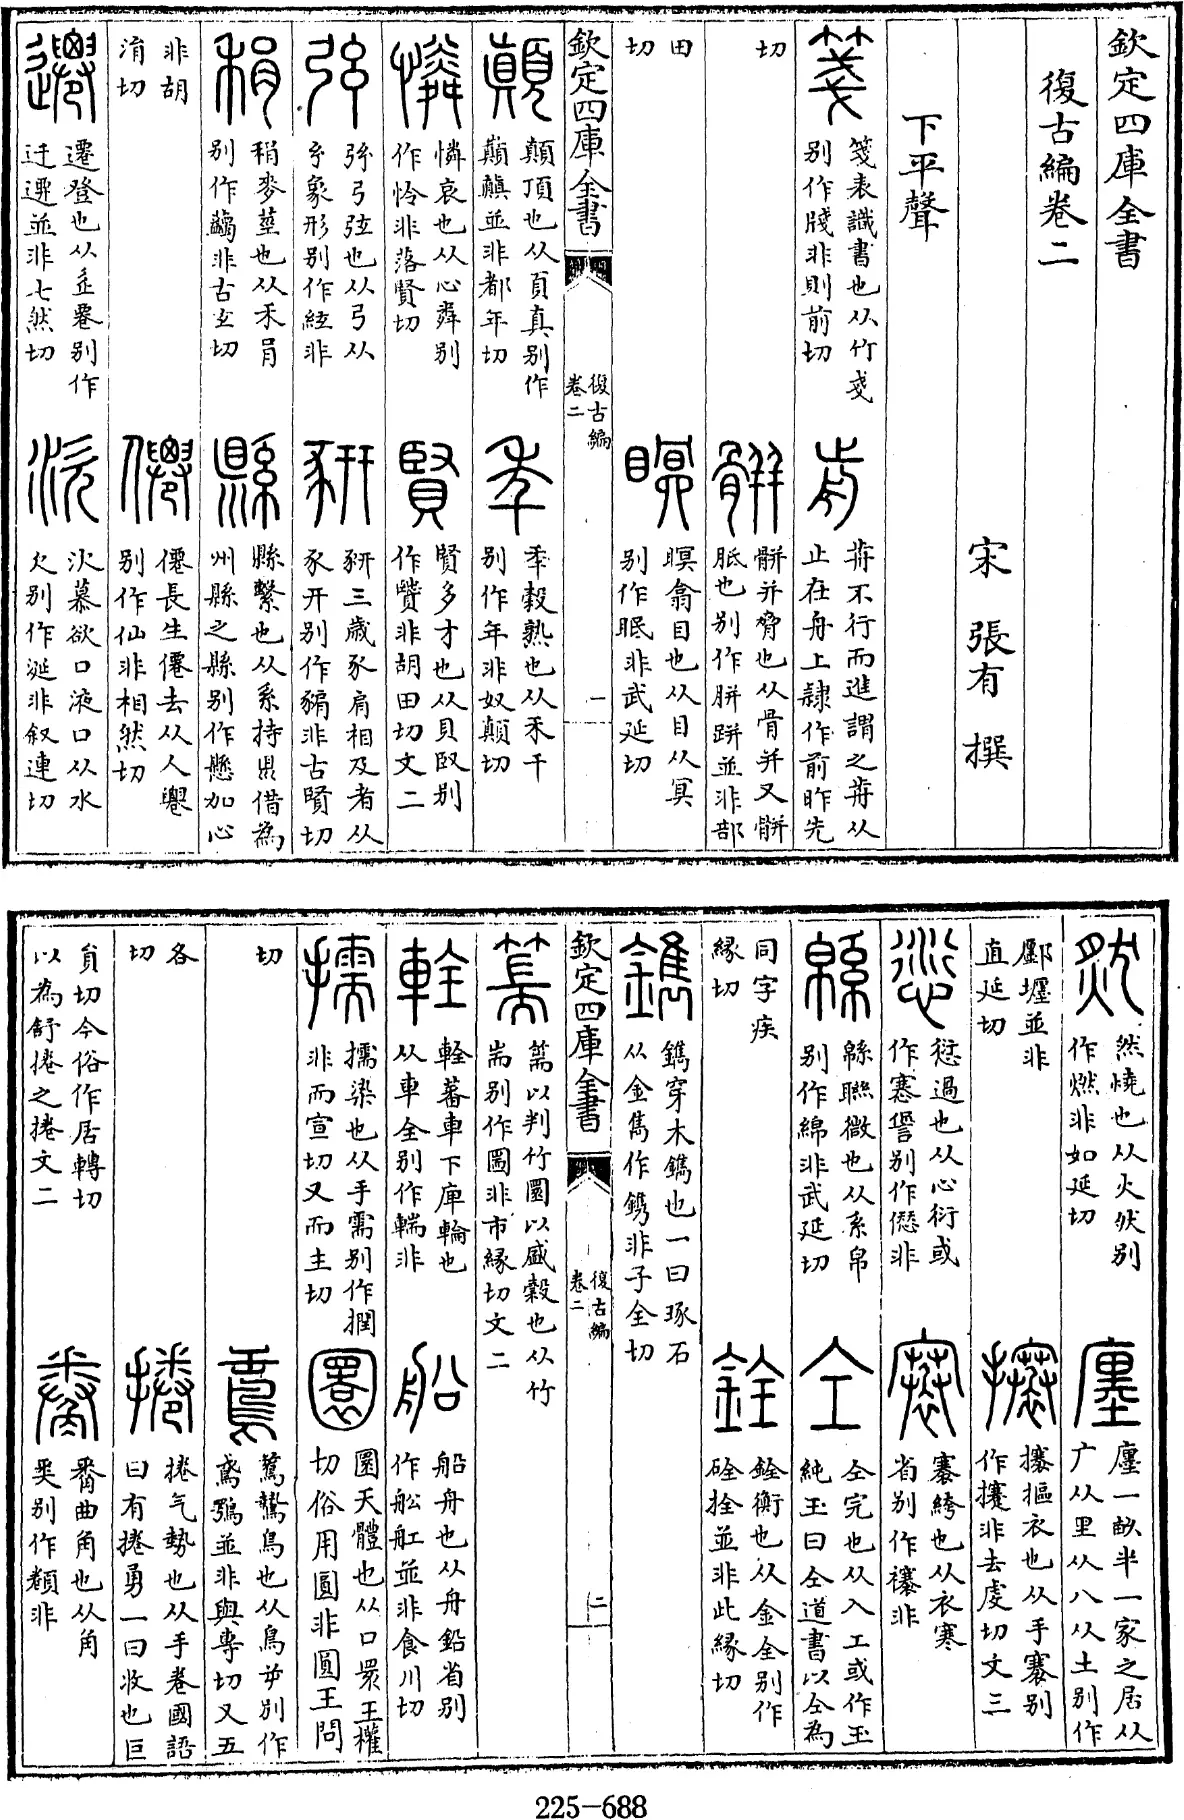 欽定四庫全書
復古編卷二
宋 張有 撰
下平聲
箋 箋表識書也从竹戔别作牋非則前切 歬 歬不行而進謂之歬从止在舟上隸作前昨先
切 骿 骿并脅也从骨并又骿胝也别作胼跰並非部
田切 瞑 瞑翕目也从目从冥别作眠非武延切
欽定四庫全書 復古編卷二 一
顛 顛頂也从頁真别作巔癲並非都年切 秊 秊穀熟也从禾千别作年非奴顛切
憐 憐哀也从心粦别作怜非落賢切 賢 賢多才也从貝臤别作贒非胡田切文二
弦 弦弓弦也从弓从糸象形别作絃非 豣 豣三歲豕肩相及者从豕幵别作豜非古賢切
稍 稍麥莖也从禾肙别作非古玄切 縣 縣繫也从系持県借為州縣之縣别作懸加心
非胡涓切 僊 僊長生僊去从人䙴别作仙非相然切
遷 遷登也从辵䙴别作迁並非七然切 㳄 㳄慕欲口液口从水欠别作涎非叙連切
然 然燒也从火肰别作燃非如延切 廛 廛一畝半一家之居从广从里从八从土别作
鄽壥並非直延切 攐 攐摳衣也从手褰别作攓非去虔切文三
愆 愆過也从心衍或作寋諐别作僁非 褰 褰絝也从衣寒省别作非
緜 緜聯微也从系帛别作綿非武延切 仝 仝完也从入工或作玉純玉曰仝道書以仝為
同字疾縁切 銓 銓衡也从金全别作硂拴並非此縁切
鐫 鐫穿木鐫也一曰琢石从金雋作鎸非子全切
欽定四庫全書 復古編卷二 二
篅 篅以判竹圜以盛穀也从竹耑别作圌非市縁切文二
輇 輇蕃車下庳輪也从車全别作輲非 船 船舟也从舟鉛省别作舩舡並非食川切
擩 擩染也从手需别作撋非而宣切又而主切 圜 圜天體也从囗睘王權切俗用圓非圓王問
切 鳶鷙鳥也从鳥屰别作鳶鶚並非與專切又五
各切 捲 捲气勢也从手卷國語曰有捲勇一曰收也巨
負切今俗作居轉切以為舒捲之捲文二 觠 觠曲角也从角别作顴非
225-688